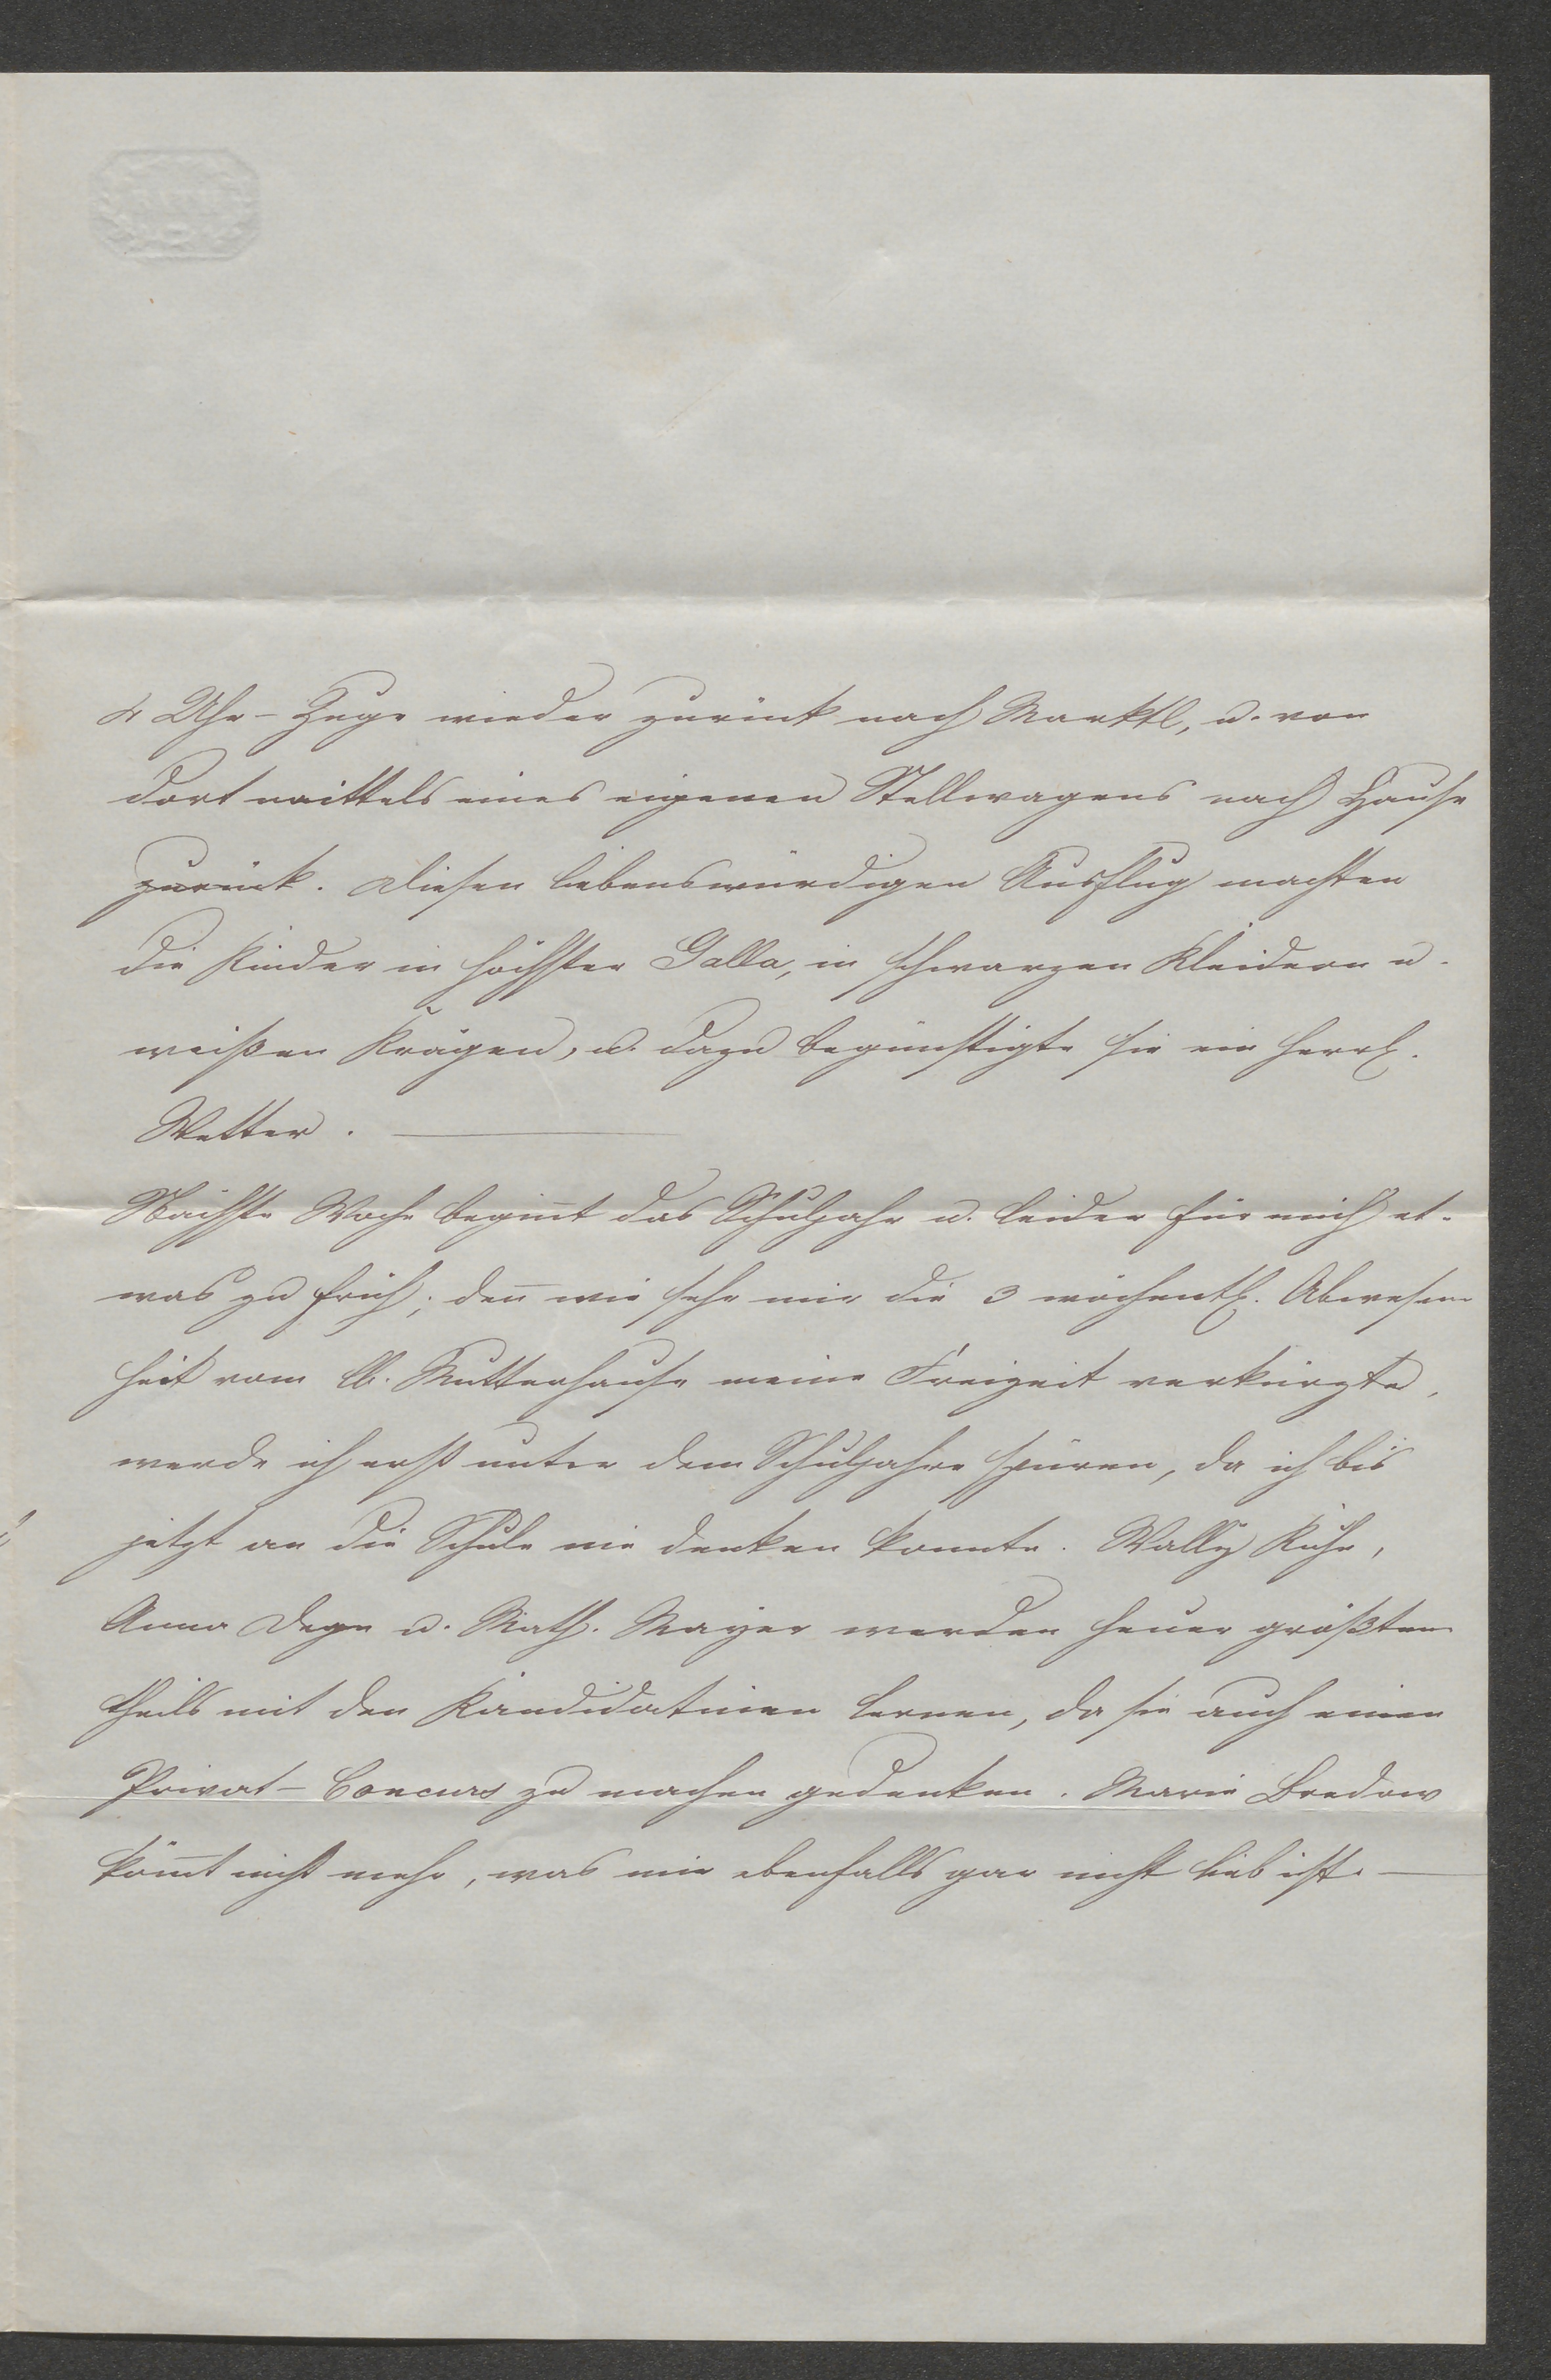 4 Uhr-Zuge wieder zurück nach Marktl, u. von
dort mittels eines eigenen Stellwagens nach Hause
zurück. Diesen liebenswürdigen Ausflug machten
die Kinder in höchster Galla, in schwarzen Kleidern u.
weißen Krägen, u. dazu begünstigte sie ein herrl.
Wetter. —
Nächste Woche begin̅t das Schuljahr u. leider für mich et-
was zu früh; den̅ wie sehr mir die 3 wöchentl. Abwesen-
heit vom lb. Mutterhause meine Freizeit verkürzte,
werde ich erst unter dem Schuljahre spüren, da ich bis
jetzt an die Schule nie denken konnte. Wally Ruhr,
Anna Degn u. Math. Mayer werden heuer größten-
theils mit den Kandidatinen lernen, da sie auch einen
Privat-Concurs zu machen gedenken. Marie Bredow
kom̅t nicht mehr, was mir ebenfalls gar nicht lieb ist. —